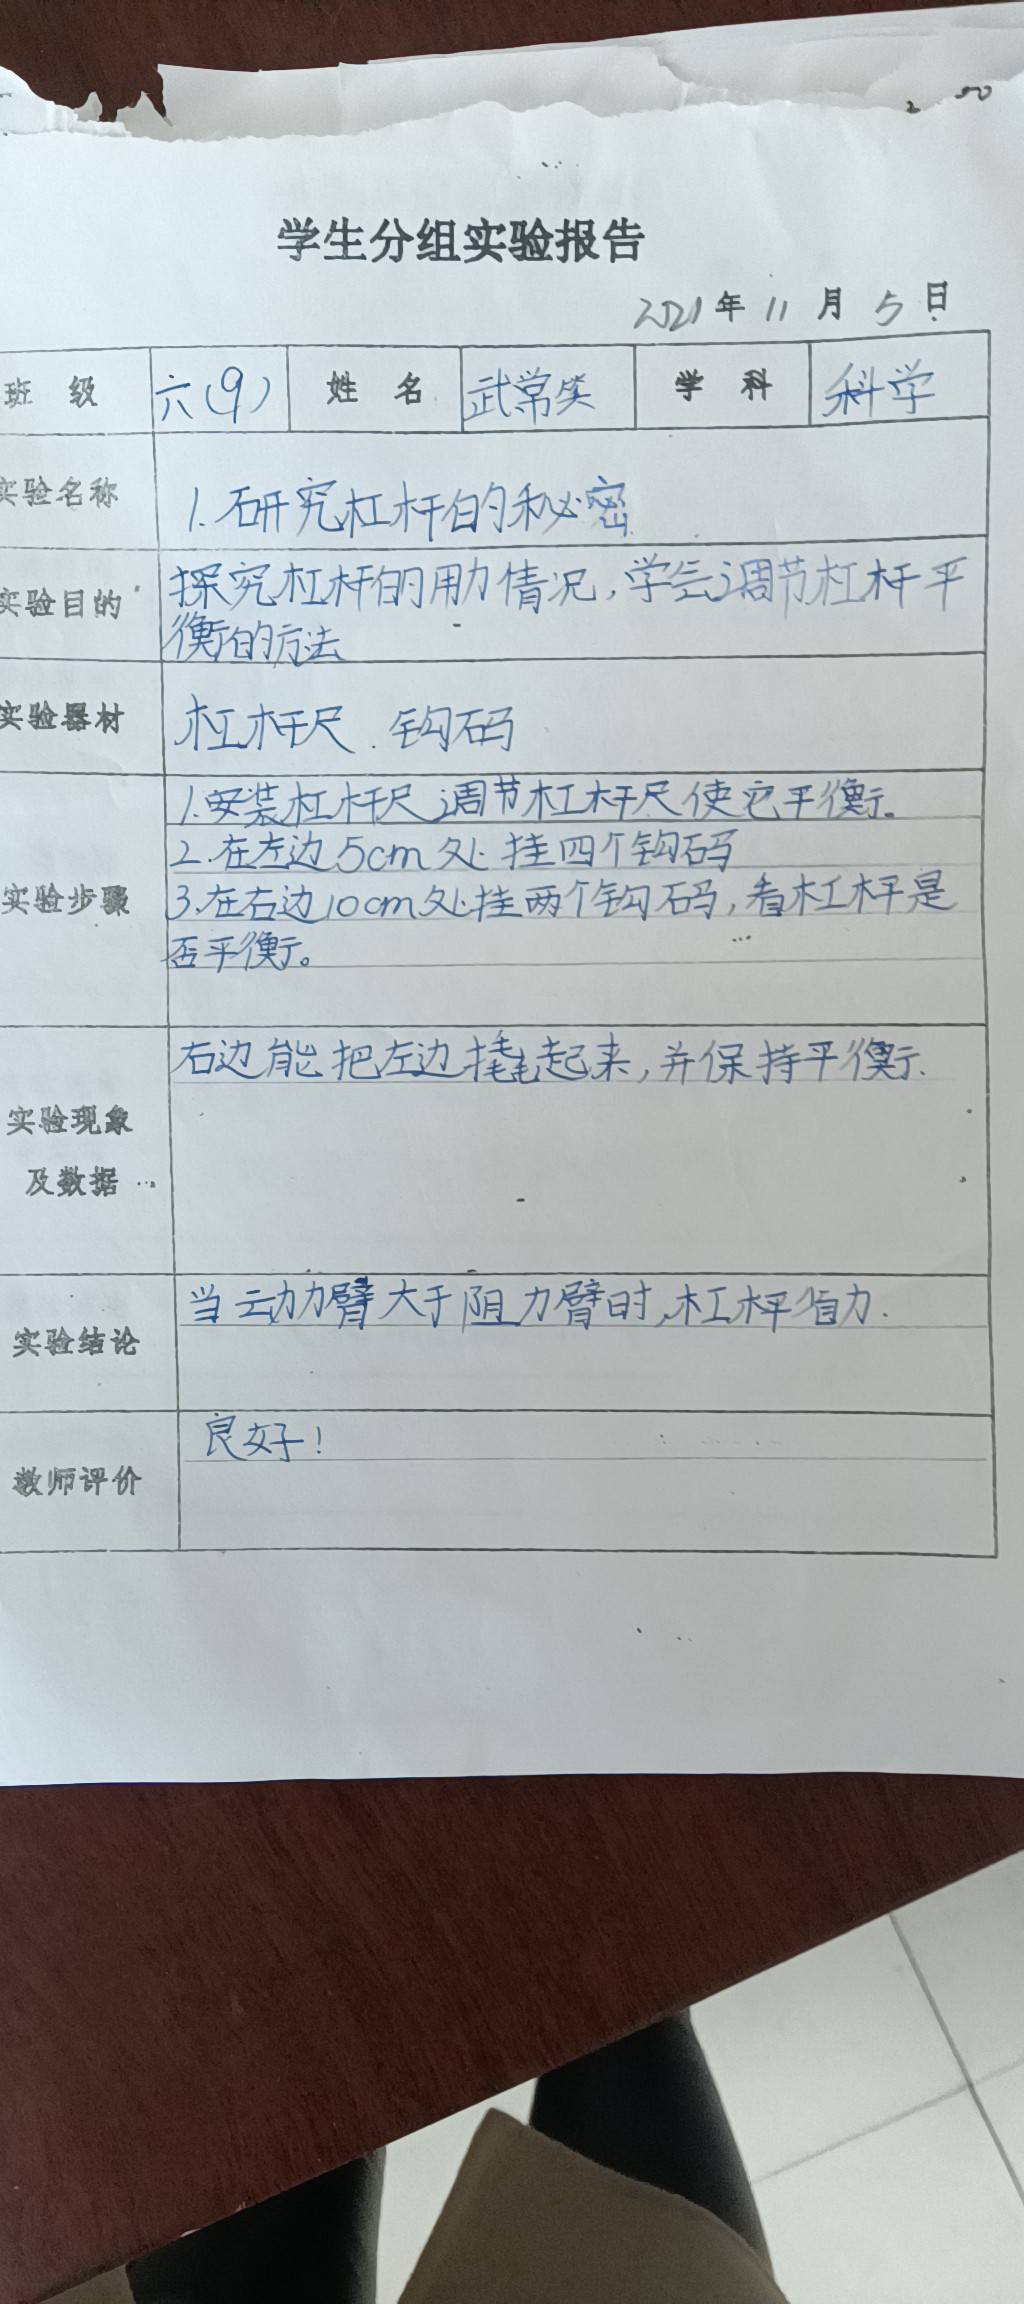 学生分组实验报告
2021年11月5日
班 级 六(9) 姓 名 武常笑 学 科 科学
实验名称 1.研究杠杆的秘密
实验目的 探究杠杆的用力情况,学会调节杠杆平
衡的方法
实验器材 杠杆尺.钩码
1.安装杠杆尺调节杠杆尺使它平衡。
2.在左边5cm处挂四个钩码
实验步骤 3.在右边10cm处挂两个钩码,看杠杆是
否平衡。
右边能把左边撬起来,并保持平衡.
实验现象
及数据
当动力臂大于阻力臂时,杠杆省力.
实验结论
良好!
教师评价